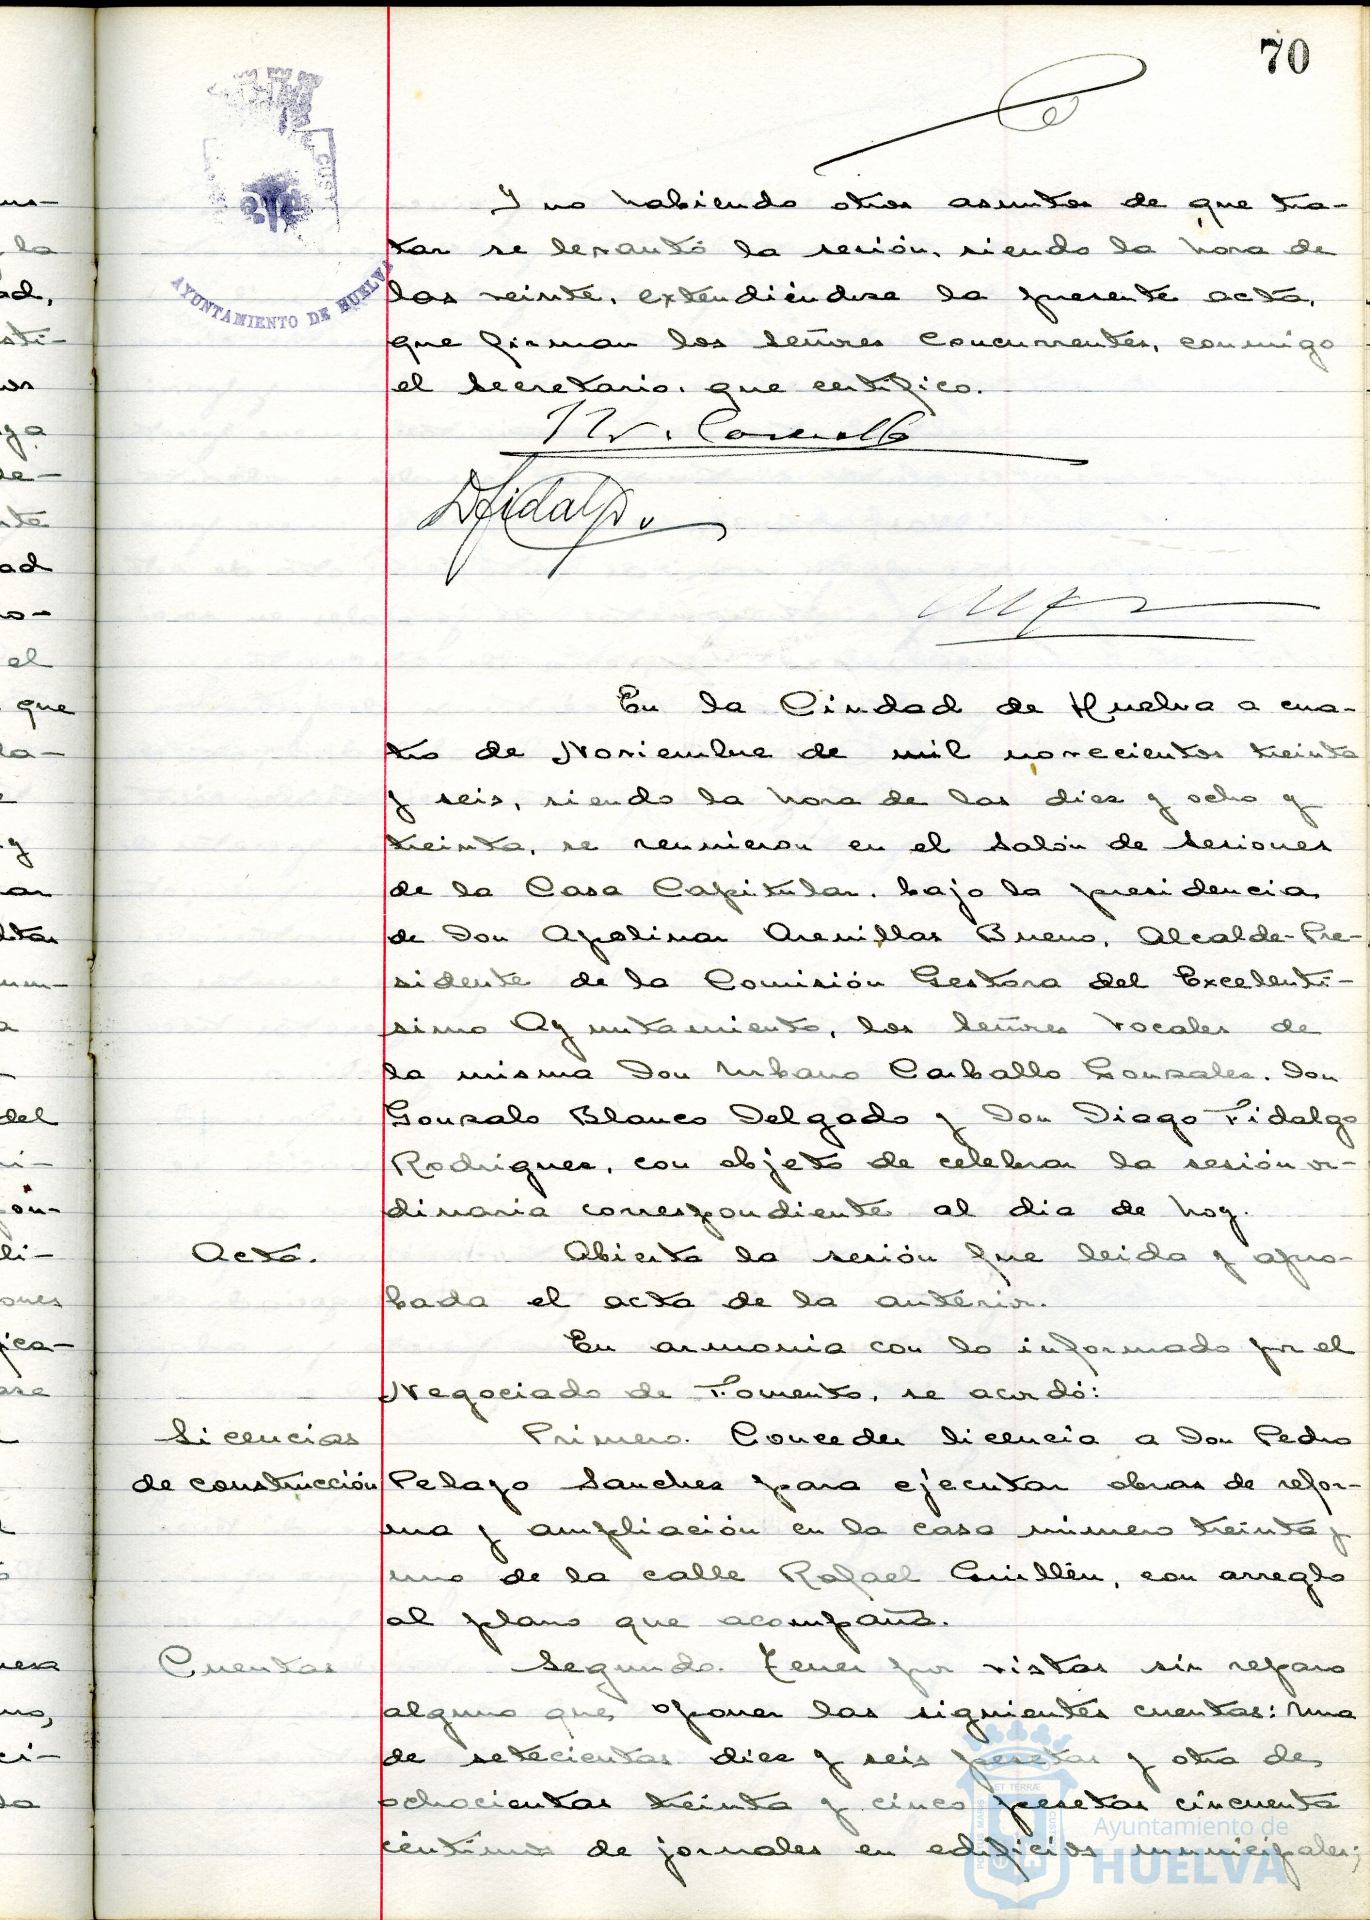 70
AYUNTAMIENTO DE HUELVA
Y no habiendo otros asuntos de que tra-
tar se levantó la sesión, siendo la hora de
las veinte, extendiéndose la presente acta,
que firman los Señores Concurrentes, conmigo
el Secretario, que certifico.
DFidalgo
En la Ciudad de Huelva a cua-
tro de Noviembre de mil novecientos treinta
y seis, siendo la hora de las diez y ocho y
treinta, se reunieron en el Salón de Sesiones
de la Casa Capitular, bajo la presidencia
de Don Apolinar Arenillas Bueno, Alcalde-Pre-
sidente de la Comisión Gestora del Excelentí-
simo Ayuntamiento, los Señores Vocales de
la misma Don Urbano Carballo Gonzalez, Don
Gonzalo Blanco Delgado y Don Diago Fidalgo
Rodriguez, con objeto de celebrar la sesión or-
dinaria correspondiente al dia de hoy.
Acta. Abierta la sesión fue leida y apro-
bada el acta de la anterior.
En armonia con lo informado por el
Negociado de Fomento, se acordó:
Licencias Primero. Conceder licencia a Don Pedro
de construcción Pelayo Sanchez para ejecutar obras de refor-
ma y ampliación en la casa número treinta y
uno de la calle Rafael Guillén, con arreglo
al plano que acompaña.
Cuentas Segundo. Tener por vistas sin reparo
alguno que oponer las siguientes cuentas: Una
de setecientas diez y seis pesetas y otra de
ochocientas treinta y cinco pesetas cincuenta
céntimos de jornales en edificios municipales;
Ayuntamiento de
HUELVA